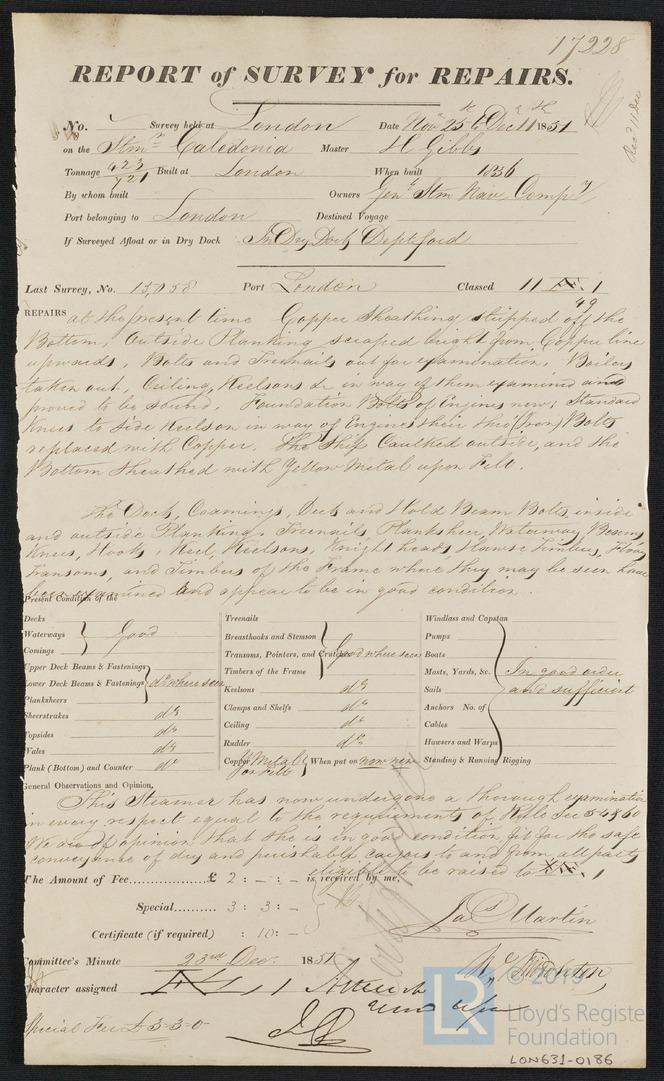 17228
REPORT of SURVEY for REPAIRS.
No. Survey held at London Date Novr 25th to Decr 11th 1851
on the Stmr Caledonia Master H Gibbs
Recd 11 Dec
Tonnage 423/721 Built at London When built 1836
By whom built Owners Genl Stm Navn Compy
Port belonging to London Destined Voyage
If Surveyed Afloat or in Dry Dock In Dry Dock Deptford
Last Survey, No. 15,058 Port London Classed 11 1
49
REPAIRS at the present time Copper Sheathing stripped off the
Bottom, Outside Planking scraped bright from Copper line
upwards, Bolts and Treenails out for examination, Boilers
taken out, Ceiling, Keelsons &c in way of them examined and
proved to be sound. Foundation Bolts of Engines new; Standard
Knees to Side Keelson in way of Engines their thro' (Iron) Bolts
replaced with Copper. The Ship Caulked outside, and the
Bottom Sheathed with Yellow Metal upon Felt.
The Deck, Coamings, Deck and Hold Beam Bolts inside
and outside Planking, Treenails, Planksheer, Waterway, Beams
Knees, Hooks, Keel, Keelsons, Knight heads, Hawse Timbers, Floors
Transoms, and Timbers of the Frame where they may be seen have
been examined and appear to be in good condition.
Present Condition of the
Decks
Waterways Good
Comings
Upper Deck Beams & Fastenings
Lower Deck Beams & Fastenings do where seen
Planksheers
Sheerstrakes do
Topsides do
Wales do
Plank (Bottom) and Counter do
Treenails
Breasthooks and Stemson
Transoms, Pointers, and Crutches Good where seen
Timbers of the Frame
Keelsons do
Clamps and Shelfs do
Ceiling do
Rudder do
Copper Y Metal or Felt When put on now new
Windlass and Capstan
Pumps
Boats
Masts, Yards, &c. In good order
Sails and sufficient
Anchors No. of
Cables
Hawsers and Warps
Standing & Running Rigging
General Observations and Opinion,
This Steamer has now undergone a thorough examination
in every respect equal to the requirements of Rule Sec 54 & 60
We are of opinion that she is in good condition, fit for the safe
conveyance of dry and perishable cargoes to and from all parts
eligible to be raised to 1
The Amount of Fee...... £ 2 : - : - is received by me,
Special.......... 3 : 3 : -
Jas Martin
Certificate (if required) : 10 : -
Committee's Minute 23rd Decr 1851
Character assigned 1
Special Fee £3-3-0
© 2019
LR
Lloyd's Register
Foundation
LON631-0186